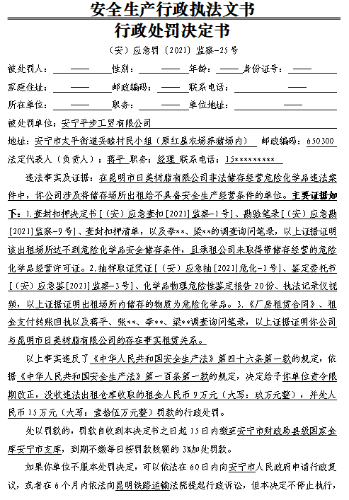 安全生产行政执法文书
行政处罚决定书
（安）应急罚〔2021〕监察-25号
被处罚人： —— 性别： —— 年龄： —— 身份证号： ——
家庭住址： —— 邮政编码： —— 联系电话： ——
所在单位： —— 职务： —— 单位地址： ——
被处罚单位：安宁平步工贸有限公司
地址：安宁市太平街道妥睦村民小组（原红星农场养猪场内） 邮政编码：650300
法定代表人（负责人）：蒋平 职务：经理 联系电话：15*********
违法事实及证据：在昆明市日美树脂有限公司非法储存经营危险化学品违法案
件中，你公司涉及将储存场所出租给不具备安全生产经营条件的单位。主要证据如
下：1.查封扣押决定书[（安）应急查扣[2021]监察-1号]、勘验笔录[（安）应急勘
[2021]监察-9号]、查封扣押清单，以及李**、梁**的调查询问笔录，以上证据证明
该出租场所达不到危险化学品安全储存条件，且承租公司未取得带储存经营的危险
化学品经营许可证。2.抽样取证凭证[（安）应急抽[2021]危化-1号]、鉴定委托书
[（安）应急鉴[2021]监察-3号]、化学品物理危险性鉴定报告20份、执法记录仪视
频，以上证据证明出租场所内储存的物质为危险化学品。3.《厂房租赁合同》、租
金支付转账回执以及蒋平、张**、李**、梁**调查询问笔录，以上证据证明你公司
与昆明市日美树脂有限公司的存在事实租赁关系。
以上事实违反了《中华人民共和国安全生产法》第四十六条第一款的规定，依
据《中华人民共和国安全生产法》第一百条第一款的规定，决定给予你单位责令限
期改正，没收违法出租仓库收取的租金人民币9万元（大写：玖万元整），并处人
民币15万元（大写：壹拾伍万元整）罚款的行政处罚。
处以罚款的，罚款自收到本决定书之日起15日内缴至安宁市财政局县级国家金
库安宁市支库，到期不缴每日按罚款数额的3%加处罚款。
如果你单位不服本处罚决定，可以依法在60日内向安宁市人民政府申请行政复
议，或者在6个月内依法向昆明铁路运输法院提起行政诉讼，但本决定不停止执行，